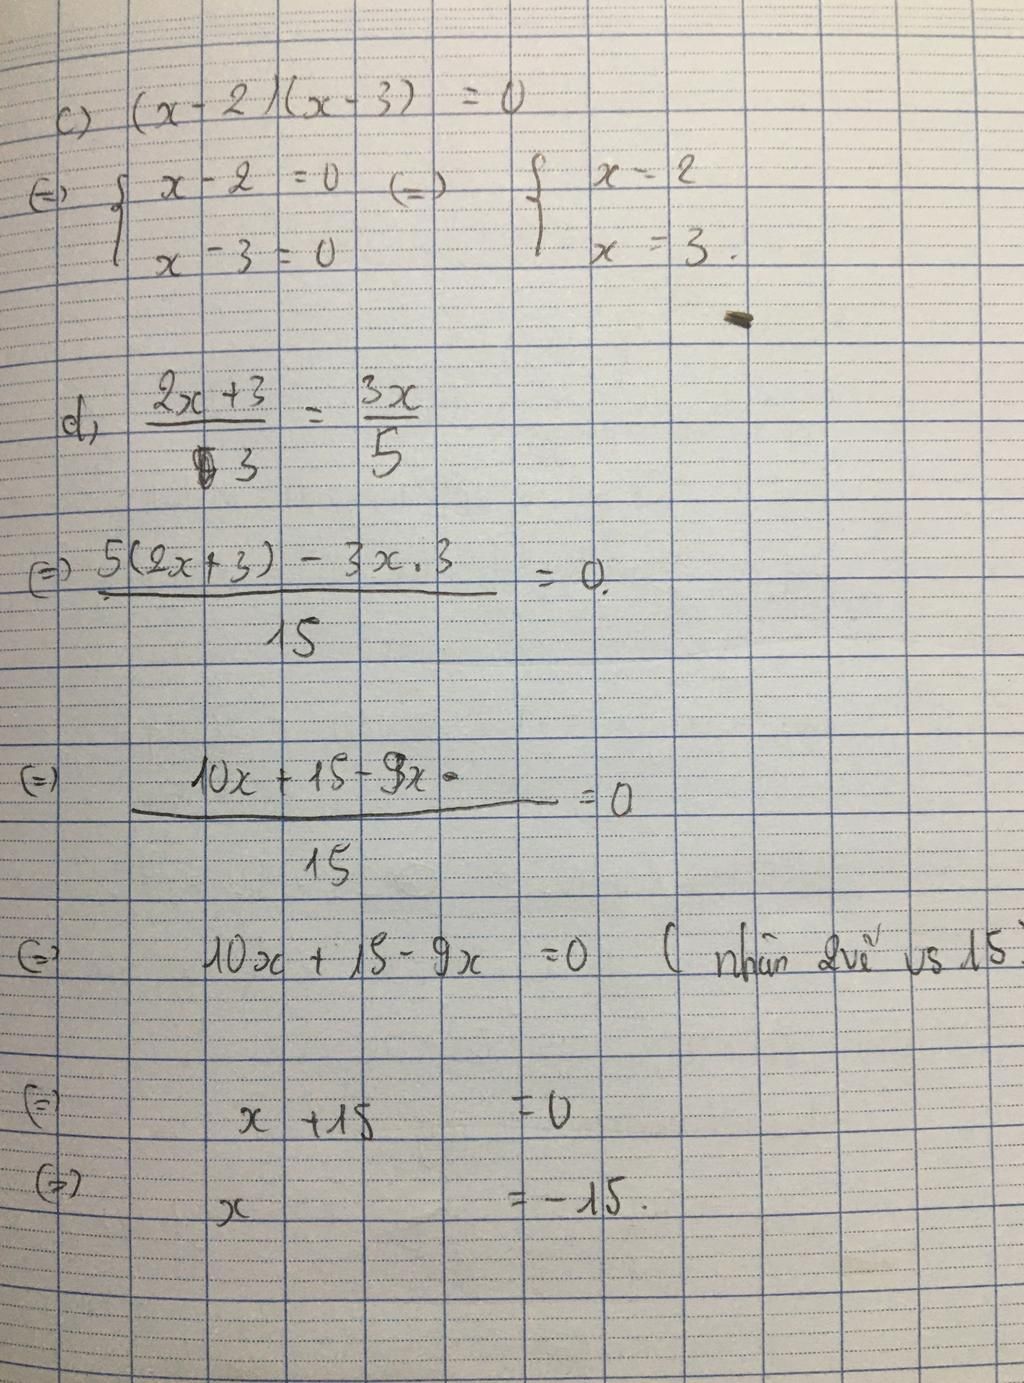 c) (x - 2)(x - 3) = 0
(=) { x - 2 = 0 (=) { x = 2
x - 3 = 0 x = 3.
d, (2x + 3)/3 = 3x/5
(=) (5(2x + 3) - 3x.3)/15 = 0.
(=) (10x + 15 - 9x)/15 = 0
(=) 10x + 15 - 9x = 0 ( nhân 2 vế vs 15)
(=) x + 15 = 0
(=) x = - 15.